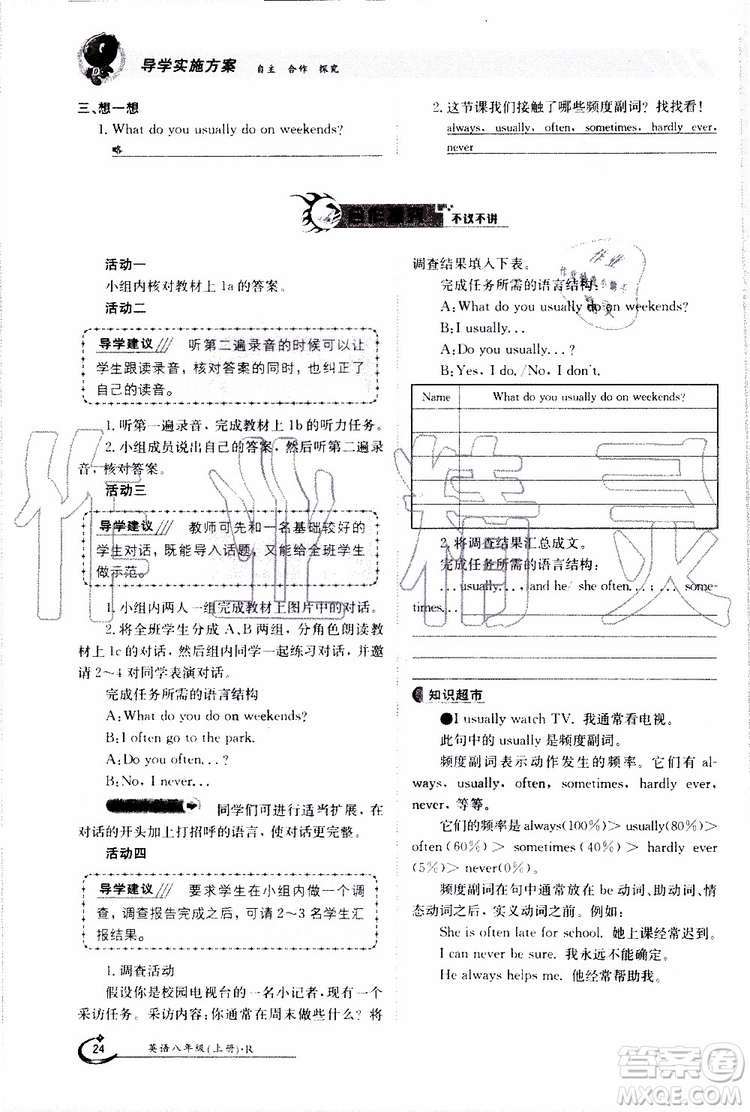 导学实施方案 自主 合作 探究
三、想一想
1. What do you usually do on weekends?
略
2. 这节课我们接触了哪些频度副词？找找看！
always, usually, often, sometimes, hardly ever,
never
不议不讲
活动一
小组内核对教材上 1a 的答案。
活动二
导学建议 听第二遍录音的时候可以让
学生跟读录音，核对答案的同时，也能纠正
自己的读音。
1. 听第一遍录音，完成教材上 1b 的听力任务。
2. 小组成员说出自己的答案，然后听第二遍录
音，核对答案。
活动三
导学建议 教师可先和一名基础较好的
学生对话，既能导入话题，又能给全班学生
做示范。
1. 小组内两人一组完成教材上图片中的对话。
2. 将全班学生分成 A、B 两组，分角色朗读教
材上 1c 的对话，然后组内同学一起练习对话，并邀
请 2～4 对同学表演对话。
完成任务所需的语言结构
A: What do you usually do on weekends?
B: I often go to the park.
A: Do you often...?
B: No, I never...
同学们可进行适当扩展，在
对话的开头加上打招呼的语言，使对话更完整。
活动四
导学建议 要求学生在小组内做一个调
查，调查报告完成之后，可请 2～3 名学生汇
报结果。
1. 调查活动
假设你是校园电视台的一名小记者，现在进行
采访任务。你通常在周末做些什么？将
调查结果填入下表。
完成任务所需的语言结构：
A: What do you usually do on weekends?
B: I usually...
A: Do you...?
B: Yes, I do. /No, I don't.
Name What do you usually do on weekends?
2. 将调查结果汇总成文。
完成任务所需的语言结构：
...usually..., and he/ she often...; ...some-
times...
知识超市
●I usually watch TV. 我通常看电视。
此句中的 usually 是频度副词。
频度副词表示动作发生的频率。它们有: al-
ways, usually, often, sometimes, hardly ever,
never，等等。
它们的频率是 always(100%)＞usually(80%)＞
often (60%)＞ sometimes (40%)＞ hardly ever
(5%)＞never(0%)。
频度副词在句中通常放在 be 动词、助动词、情
态动词之后，实义动词之前。例如：
She is often late for school. 她上课经常迟到。
I can never be sure. 我永远不能确定。
He always helps me. 他经常帮助我。
24 英语八年级(上册)·R
作业精灵
MXQE.COM